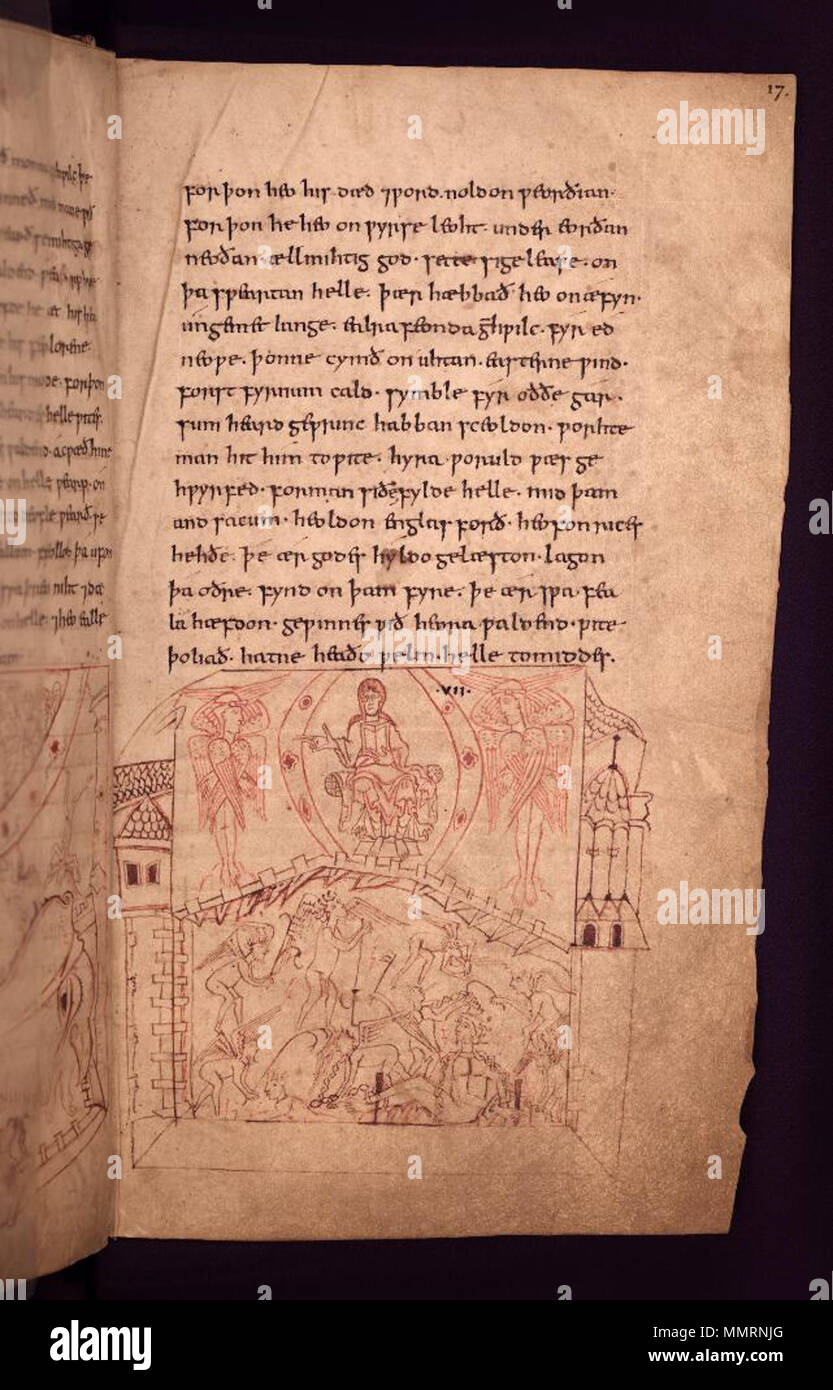 17.
forþon heo his dæd ⁊ƿord. noldon ƿeorðian.
forþon he heo on ƿyrse leoht. under eorðan
neoðan. ællmihtig god. sette sigelease. on
þa sƿeartan helle. þær hæbbað heo on æfyn.
ungemet lange. ealra feonda gehƿilc. fyr ed
neoƿe. þonne cymð on uhtan. easterne ƿind.
forst fyrnum cald. symble fyr oððe gar.
sum heard geƿrinc habban sceoldon. ƿorhte
man hit him to ƿite. hyra ƿoruld ƿæs ge
hƿyrfed. forman sið. fylde helle. mid þam
and sacum. heoldon englas forð. heofon rices
hehðe. þe ær godes hyldo gelæston. lagon
þa oðre. fynd on þam fyre. þe ær sƿa. fea
la hæfdon. geƿinnes ƿið heora ƿaldend. ƿite
þoliað. hatne heaðo ƿelm. helle tomiddes.
·VII·
alamy
Image ID: MMRNJG
www.alamy.com